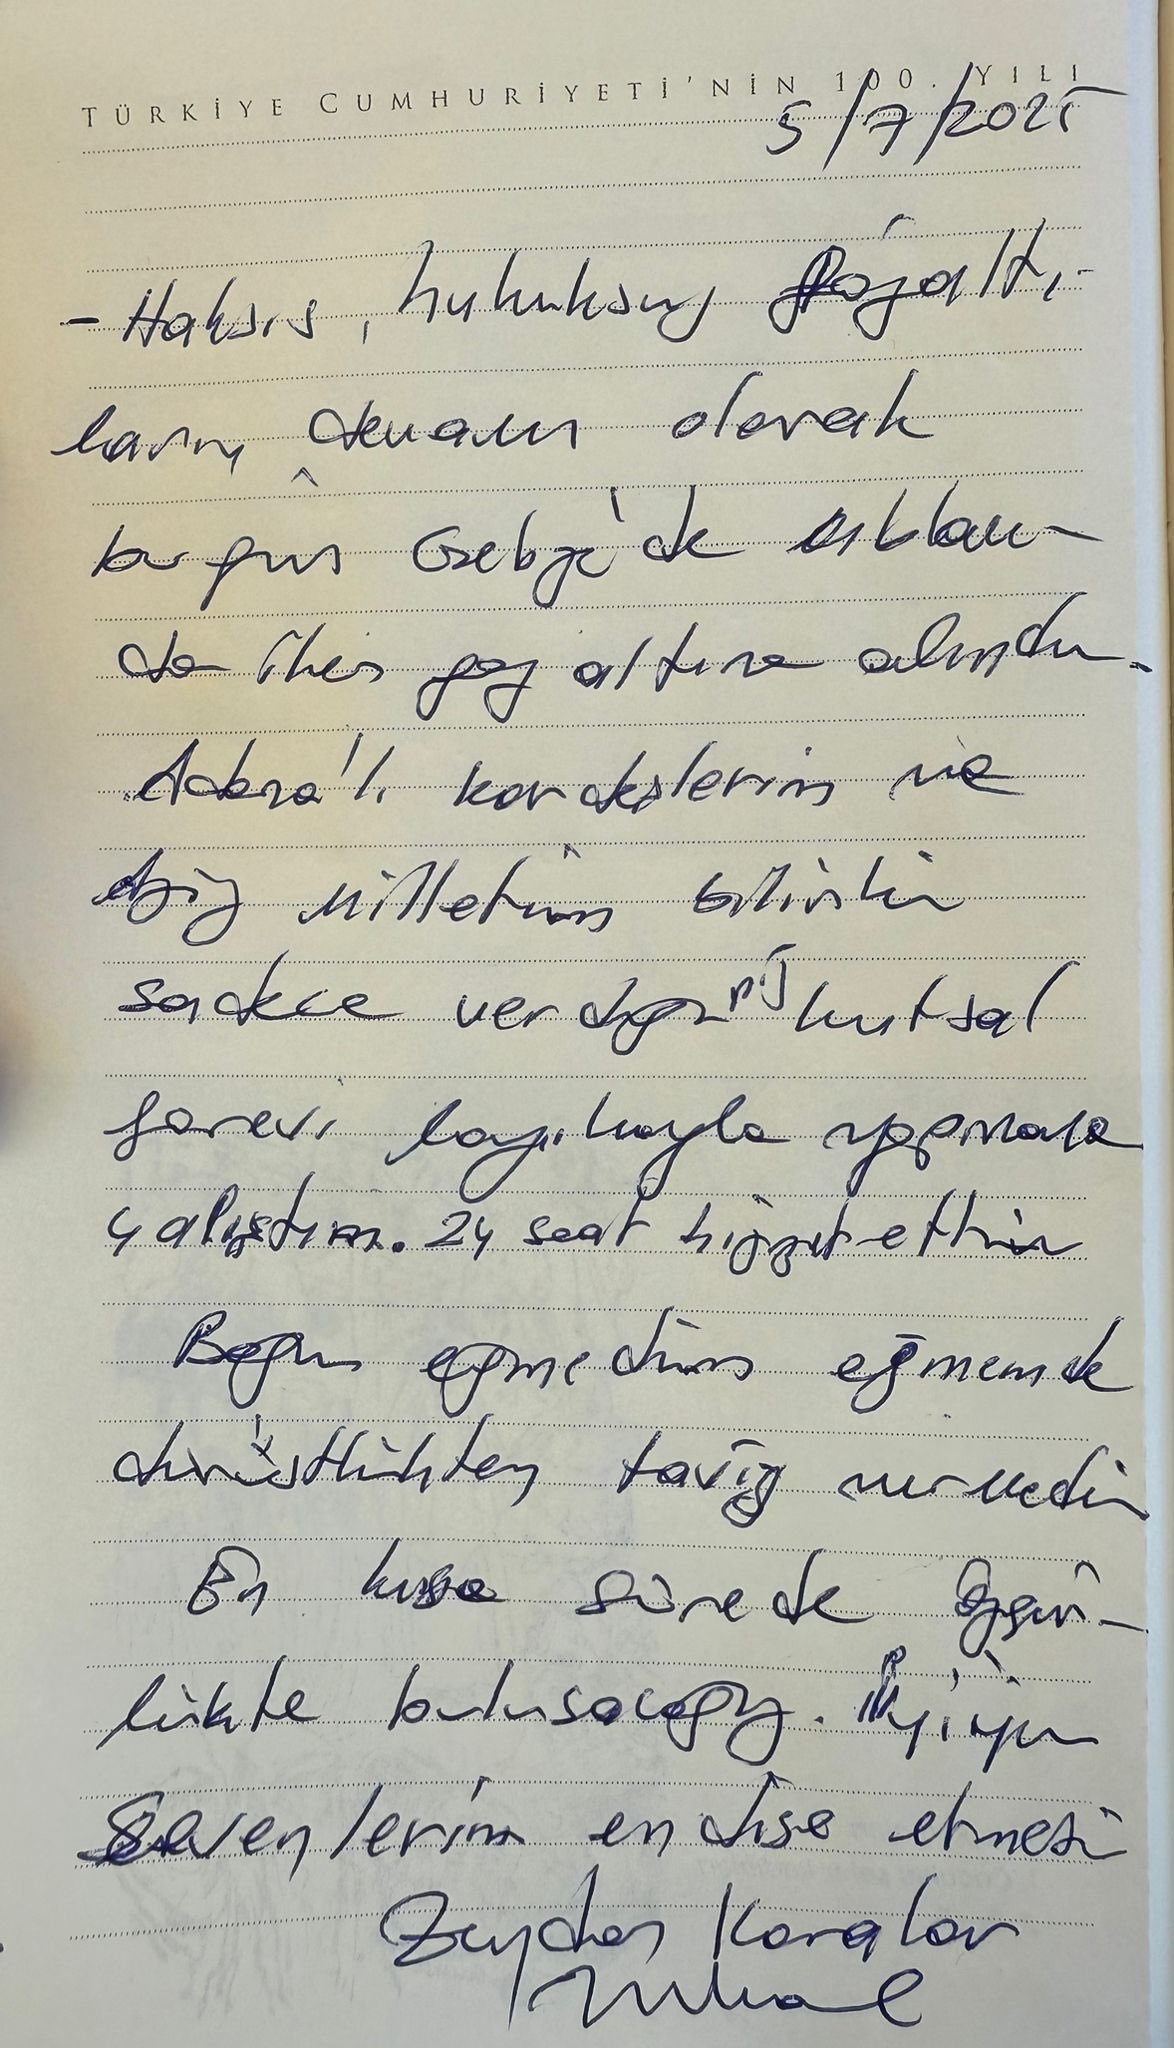 TÜRKİYE CUMHURİYETİ'NİN 100. YILI
5/7/2025
- Haksız, hukuksuz gözaltı-
ların devamı olarak
bugün Gebze'de ablam-
da iken göz altına alındım.
Adana'lı kardeşlerim ve
Aziz Milletim bilsinki
sadece verdiğiniz kutsal
görevi layıkıyla yapmaya
çalıştım. 24 saat hizmet ettim
Boğun eğmedim eğmemde
dürüstlükten taviz vermedim
En kısa sürede özgür-
lükte buluşacağız. İyiyim
Sevenlerim endişe etmesin
Zeydan Karalar